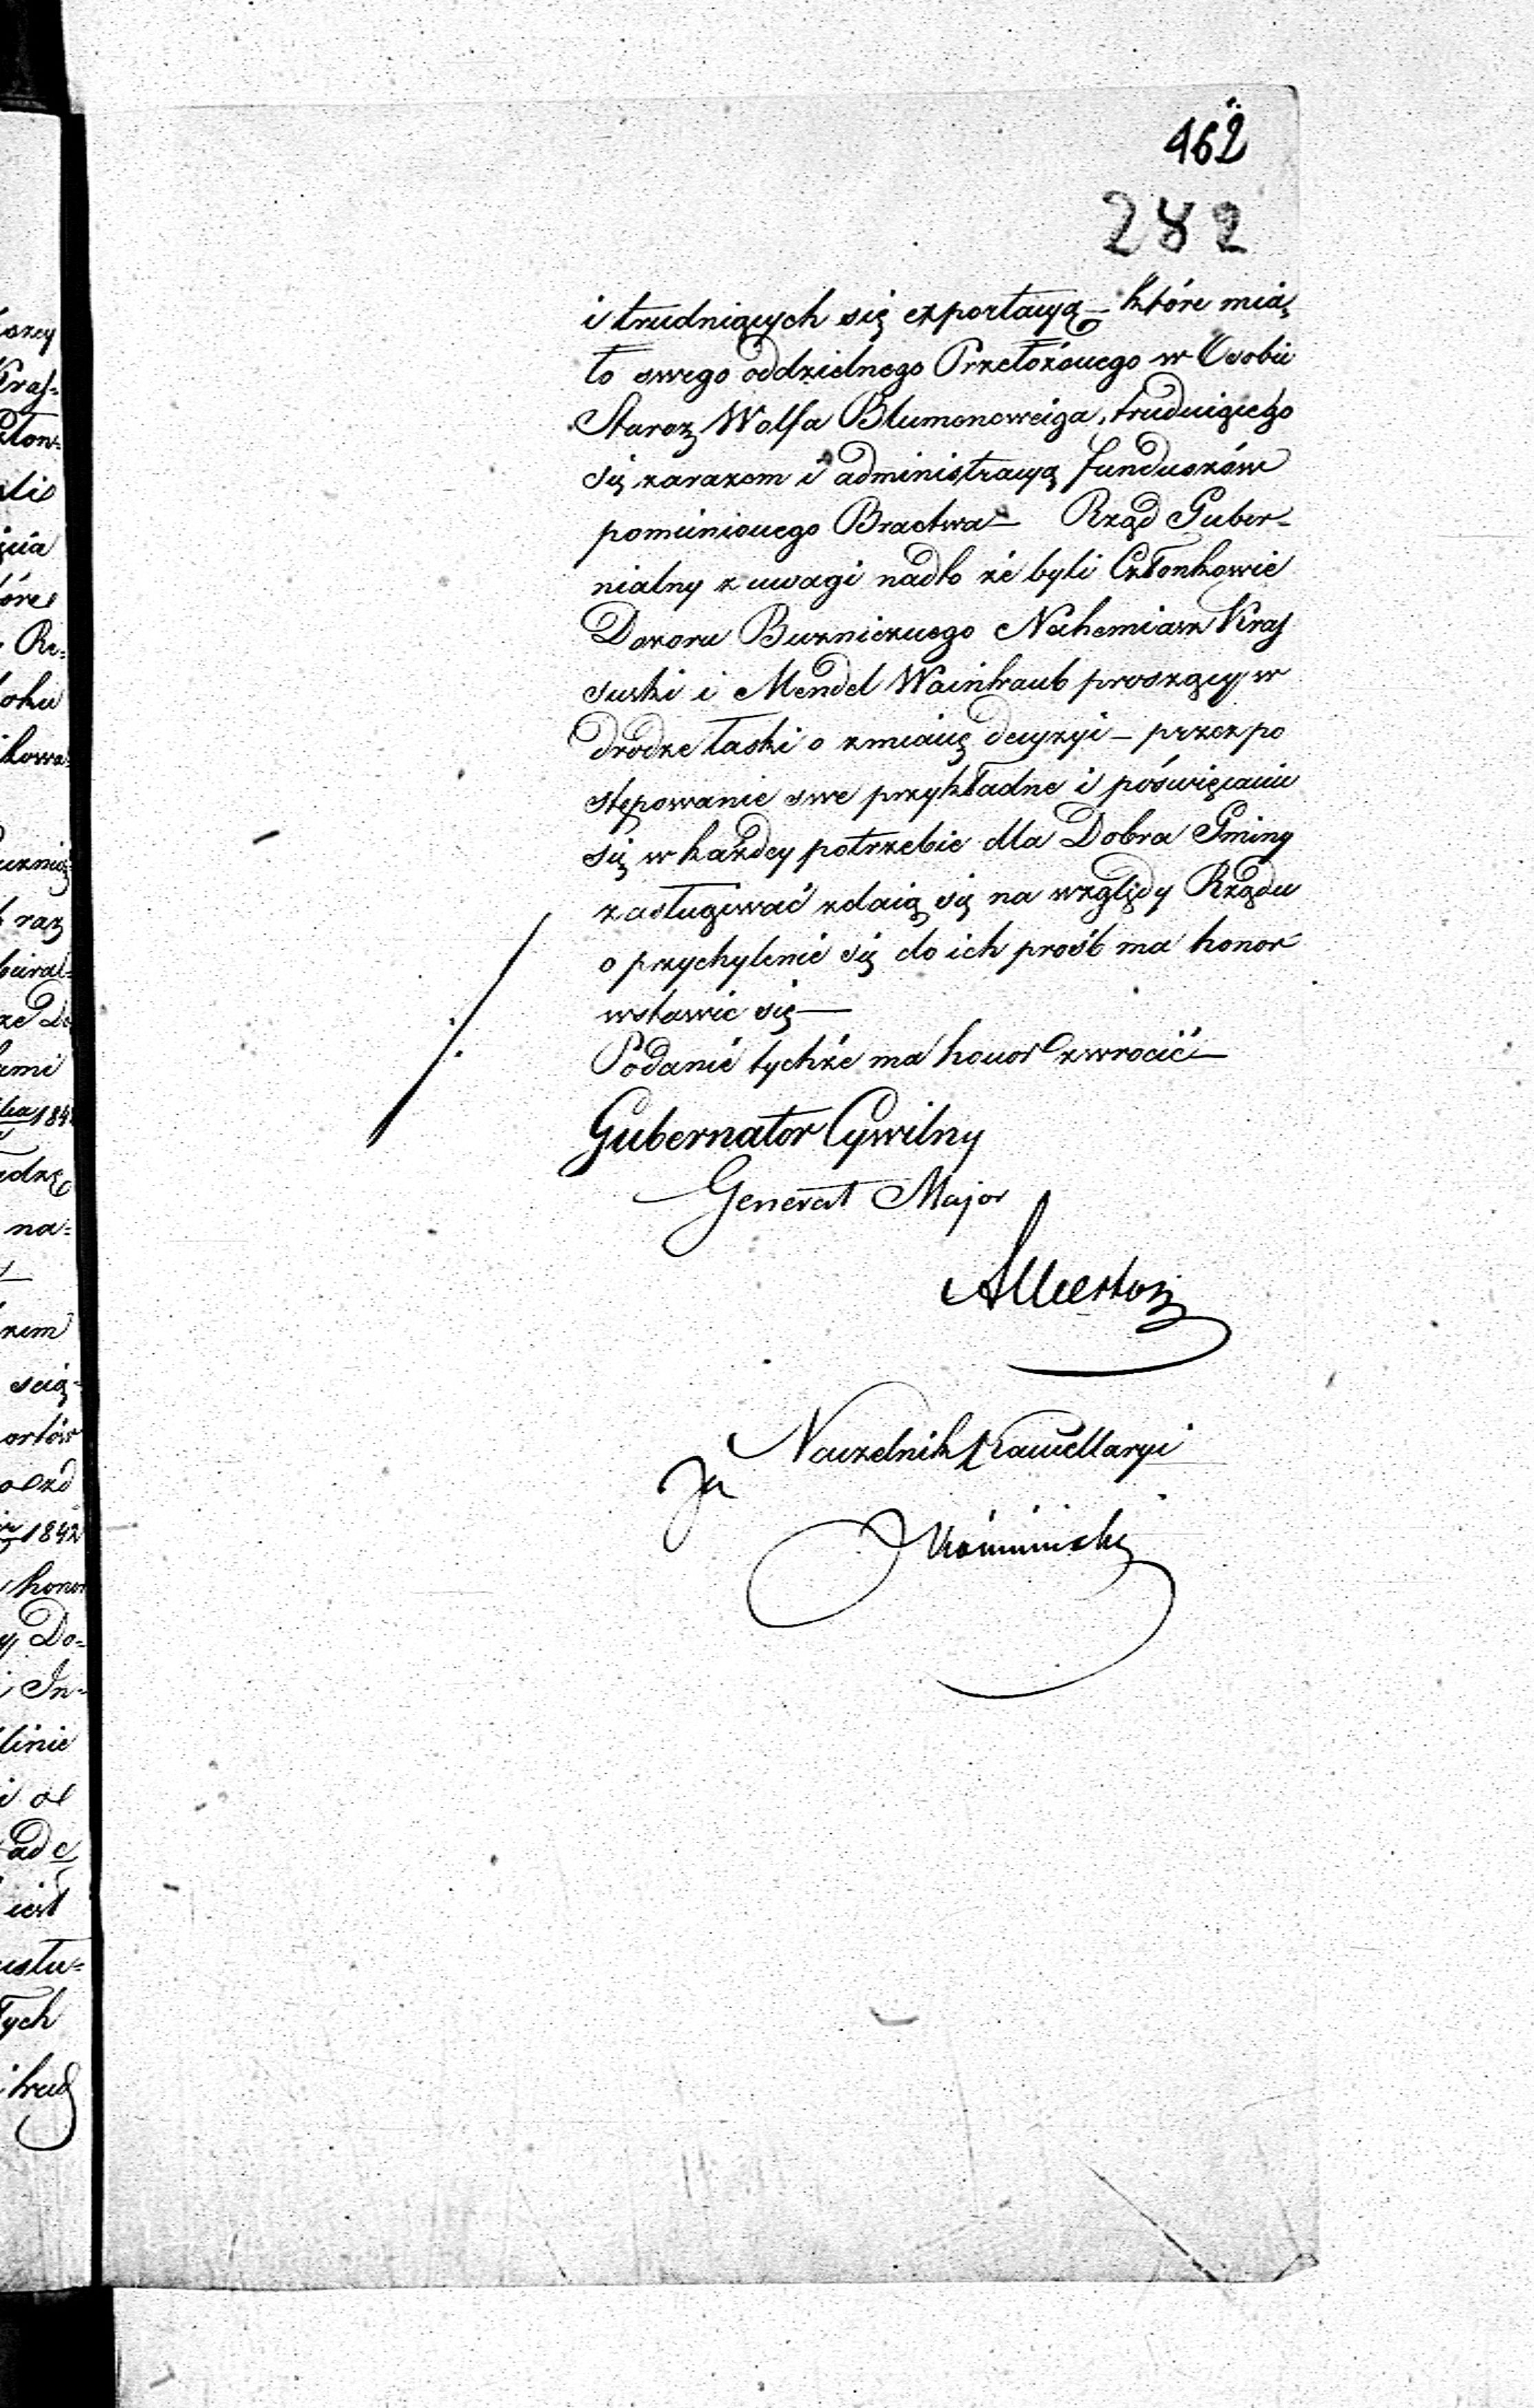 462
282
i trudniących się exportacyą – które mia
ło swego oddzielnego Przełożonego w Osobie
Staroz Wolfa Blumencweiga, trudniącego
się zarazem i administracyą funduszów
pomienionego Bractwa – Rząd Guber-
nialny z uwagi nadto że byli Członkowie
Dozoru Bużnicznego Nehemiasz Kraj
suski i Mendel Waintraub proszący w
drodze łaski o zmianę decyzyi – przez po
stępowanie swe przykładne i poświęcanie
się w każdey potrzebie dla Dobra Gminy
zasługiwać zdaią się na względy Rządu
o przychylenie się do ich prośb ma honor
wstawić się –
Podanie tychże ma honor zwrócić –
Gubernator Cywilny
Generał Major
Naczelnik Kancellaryi
szey
Kraj-
człon=
óre
Re=
oku
raz
ze Do
ami
184
na=
zem
scią-
1842
honor
Do=
In-
linie
ad c
iest
tych
i trud